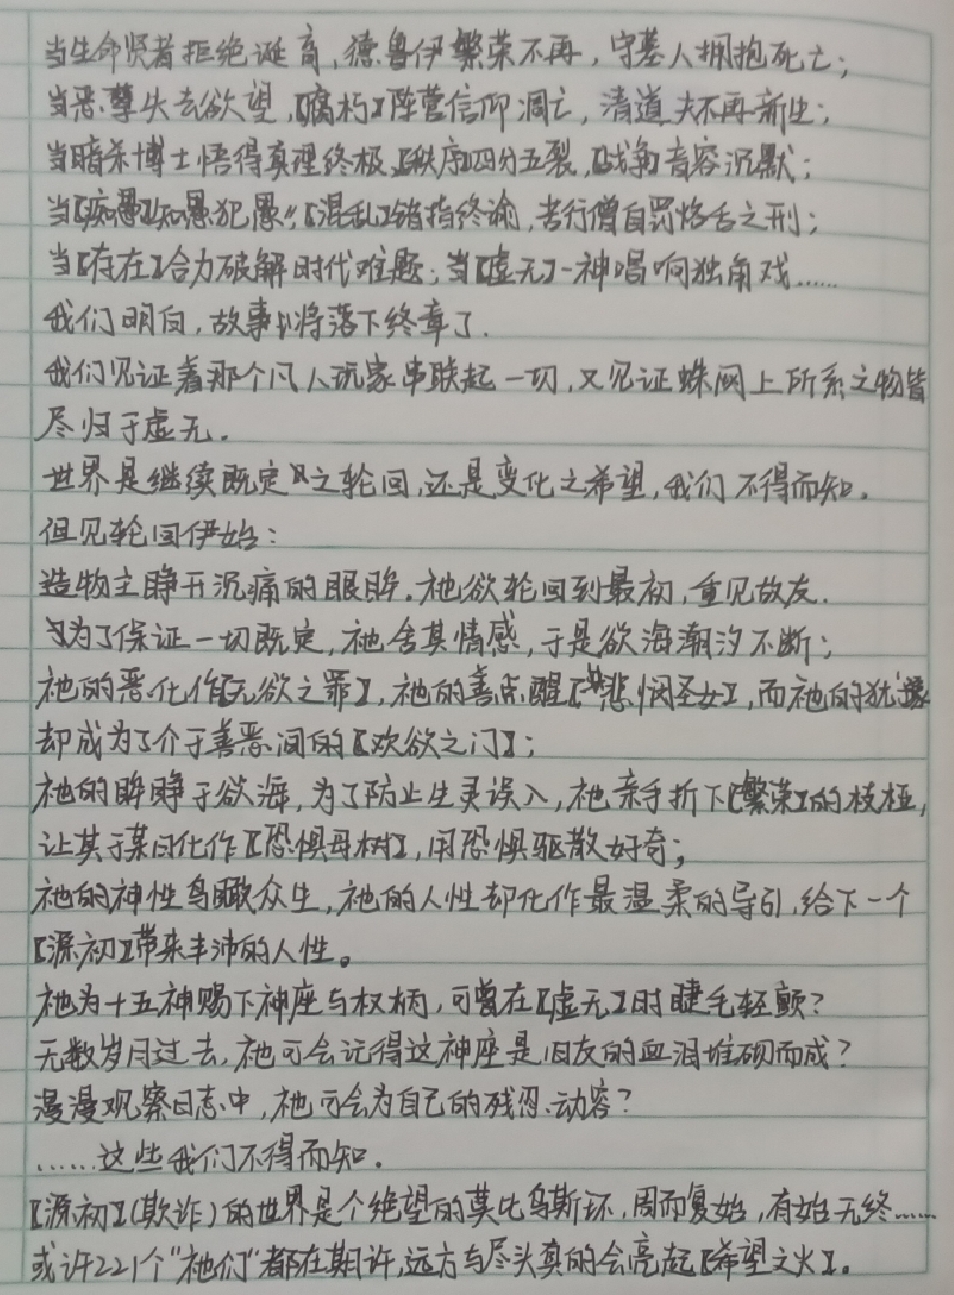 当生命贤者拒绝诞育,德鲁伊繁荣不再,守墓人拥抱死亡;
当恶孽失去欲望,【腐朽】阵营信仰凋亡,清道夫不再新生;
当暗杀博士悟得真理终极,【秩序】四分五裂,【战争】音容沉默;
当【痴愚】知愚犯愚,【混乱】错指终谕,苦行僧自罚烙舌之刑;
当【存在】合力破解时代难题;当【虚无】一神唱响独角戏......
我们明白,故事将落下终章了.
我们见证着那个凡人玩家串联起一切,又见证蛛网上所系之物皆
尽归于虚无.
世界是继续既定之轮回,还是变化之希望,我们不得而知.
但见轮回伊始:
造物主睁开沉痛的眼眸.祂欲轮回到最初,重见故友.
为了保证一切既定,祂舍其情感,于是欲海潮汐不断;
祂的恶化作【无欲之罪】,祂的善点醒【悲悯圣女】,而祂的犹豫
却成为了介于善恶间的【欢欲之门】;
祂的眸睁于欲海,为了防止生灵误入,祂亲手折下【繁荣】的枝桠,
让其于某日化作【恐惧母树】,用恐惧驱散好奇;
祂的神性鸟瞰众生,祂的人性却化作最温柔的导引,给下一个
【源初】带来丰沛的人性。
祂为十五神赐下神座与权柄,可曾在【虚无】时睫毛轻颤?
无数岁月过去,祂可会记得这神座是旧友的血泪堆砌而成?
漫漫观察日志中,祂可会为自己的残忍动容?
......这些我们不得而知.
【源初】(欺诈)的世界是个绝望的莫比乌斯环,周而复始,有始无终......
或许221个"祂们"都在期许,远方与尽头真的会亮起【希望之火】.